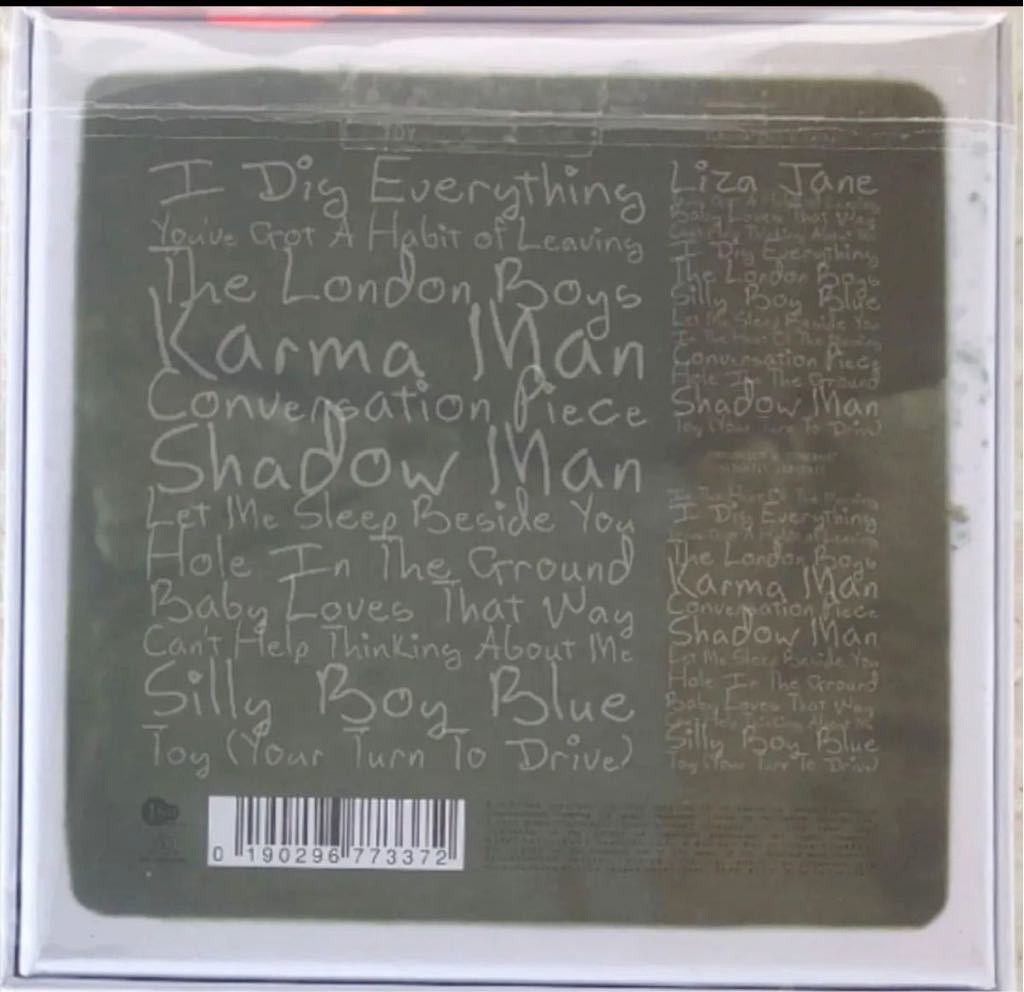 TOY
I Dig Everything
You've Got A Habit of Leaving
The London Boys
Karma Man
Conversation Piece
Shadow Man
Let Me Sleep Beside You
Hole In The Ground
Baby Loves That Way
Can't Help Thinking About Me
Silly Boy Blue
Toy (Your Turn To Drive)
Liza Jane
You've Got A Habit of Leaving
Baby Loves That Way
Can't Help Thinking About Me
I Dig Everything
The London Boys
Silly Boy Blue
Let Me Sleep Beside You
In The Heat Of The Morning
Conversation Piece
Hole In The Ground
Shadow Man
Toy (Your Turn To Drive)
In The Heat Of The Morning
I Dig Everything
You've Got A Habit of Leaving
The London Boys
Karma Man
Conversation Piece
Shadow Man
Let Me Sleep Beside You
Hole In The Ground
Baby Loves That Way
Can't Help Thinking About Me
Silly Boy Blue
Toy (Your Turn To Drive)
0 190296 773372